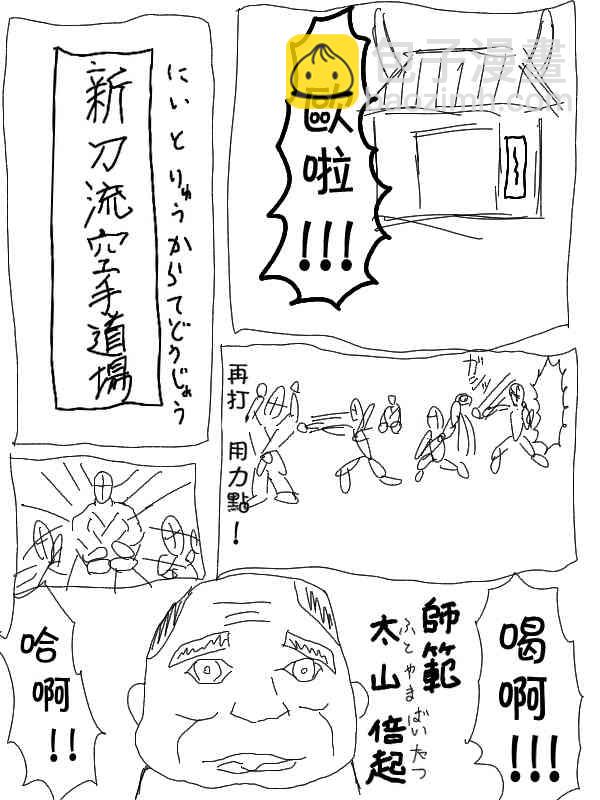 歐啦!!!
包子漫畫
baozimh.com
にいとりゅうからてどうじょう
新刀流空手道場
ガシッ
再打 用力點!
喝啊!!!
師範
太山 倍起
ふとやま ばいたつ
哈啊!!